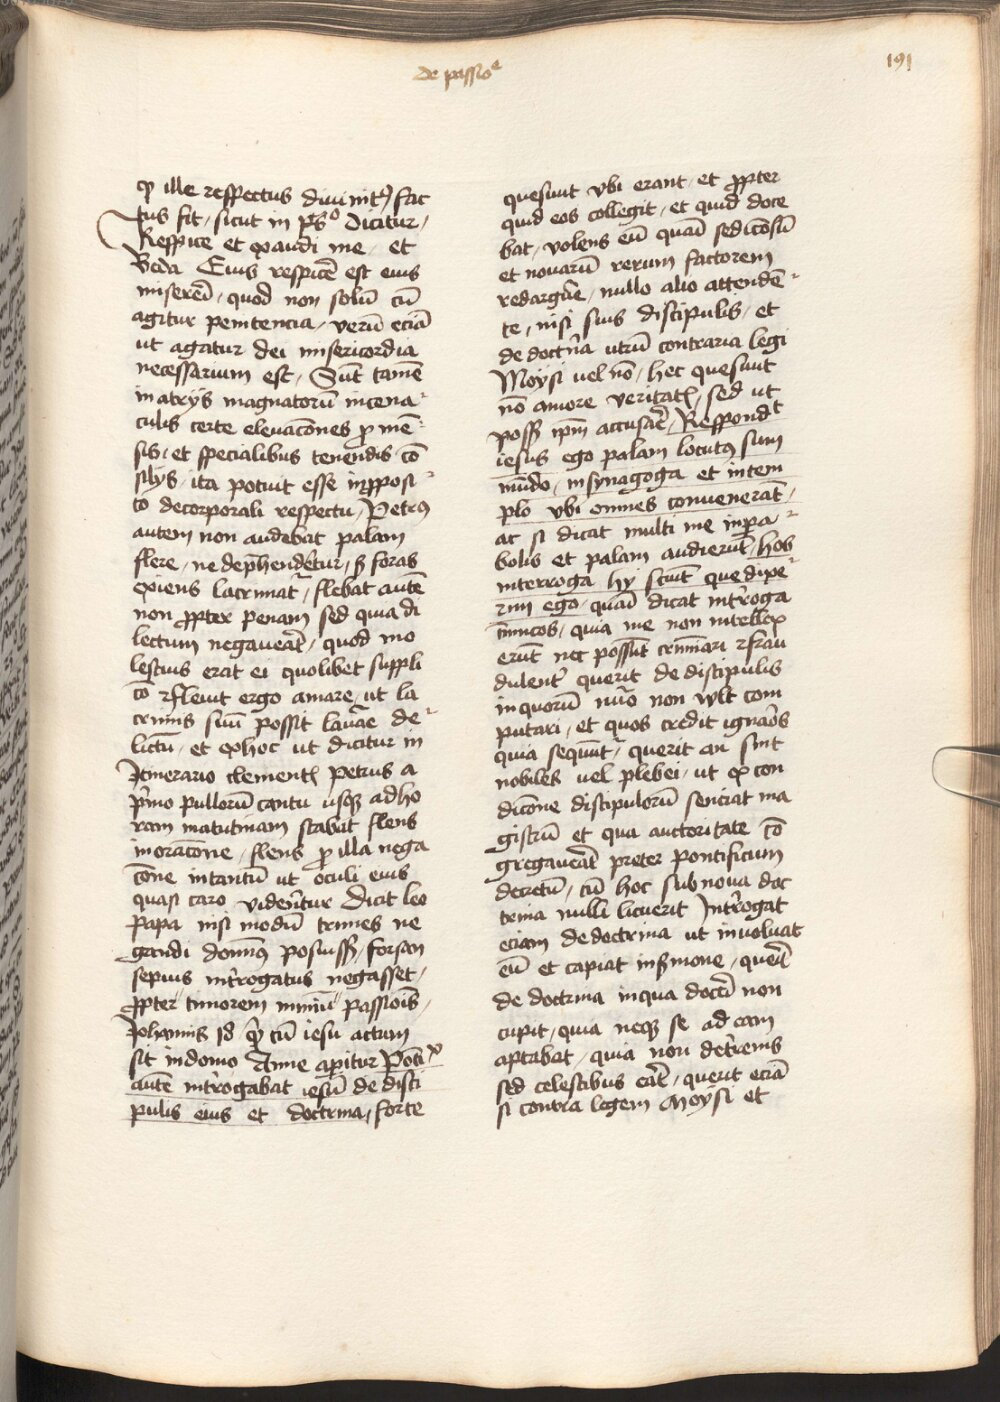 de passioᵉ
191
ꝙ ille respectus diuinitꝰ fac
tus fit / sicut in psº dicitur /
Respice et exaudi me / et
Beda Eius respicẽ est eius
miserẽi / quod non solũ cũ
agitur penitencia / verũ eciã
ut agatur dei misericordia
necessarium est / Sũt tamẽ
in atrijs magnatorũ in cena-
culis certe eleuacõnes ꝓ mẽ-
sis / et specialibus tenendis cõ
silijs / ita potuit esse in ꝓposi-
to de corporali respectu / Petrꝰ
autem non audebat palam
flere / ne dep̃hendẽtur / sꝫ foras
exiens lacrimatᷣ / flebat autẽ
non ꝓpter penam sed quia di
lectum negauerãt / quod mo
lestius erat ei quolibet suppli
cõ Ꝛ fleuit ergo amare / ut la
crimis suũ possit lauãe de-
lictũ / et ex hoc ut dicitur in
Itinerario clementꝭ Petrus a
p̃mo pullorũ cantu usqꝫ ad ho
ram matutinam stabat flens
in oracõne / flens ꝓ illa nega
cõne in tantũ ut oculi eius
quasi caro viderẽtur Dicit leo
Papa nisi modũ trines ne
gandi domĩus posuissꝫ / forsan
sepius int̃rogatus negasset /
ꝓpter timorem nimiũ passiois̃ /
Johannis 18 q̃ cũ iesu actum
sit in domo Anne apitur Põti x
autẽ int̃rogabat iesũ de disci
pulis eius et doctrina / forte
quesiuit vbi erant / et ꝓpter
quid eos collegit / et quid doce
bat / volens eũ quasi sedicõsũ
et nouarũ rerum factorem
redargũe / nullo alio attendẽ-
te / nisi suis discipulis / et
de doct̃na utrũ contraria legi
Moysi uel nõ / hec quesiuit
nõ amore veritatꝭ / sed ut
possꝫ ip̃m accusar̃e / Respondᵗ
iesus ego palam locutꝰ sum
mũdo / in synagoga et in tem
plo vbi omnes conuenerãt /
ac si dicat multi me in p̃a-
bolis et palam audierũt / hos
interroga hij sciũt que dixe-
rim ego / quasi dicat int̃roga
inimicos / quia me non intellex
erũt nec possũt criminari Ꝛ frau
dulentᷣ querit de discipulis
in quorũ nũo non vult com
putari / et quos credit ignaros
quia sequũtᷣ / querit an sint
nobiles uel plebei / ut ex con
dicõne discipulorũ senciat ma
gistrũ et qua auctoritate cõ
gregauerãt preter pontificum
decretũ / cũ hoc sub noua doc
trina nulli licuerit Int̃rogat
eciam de doctrina ut inuoluat
eũ et capiat in s̃mone / querit
de doctrina in qua docẽi non
cupit / quia neqꝫ se ad eam
aptabat / quia non det̃renis
sed celestibus erãt / querit eciã
si contra legem Moysi et